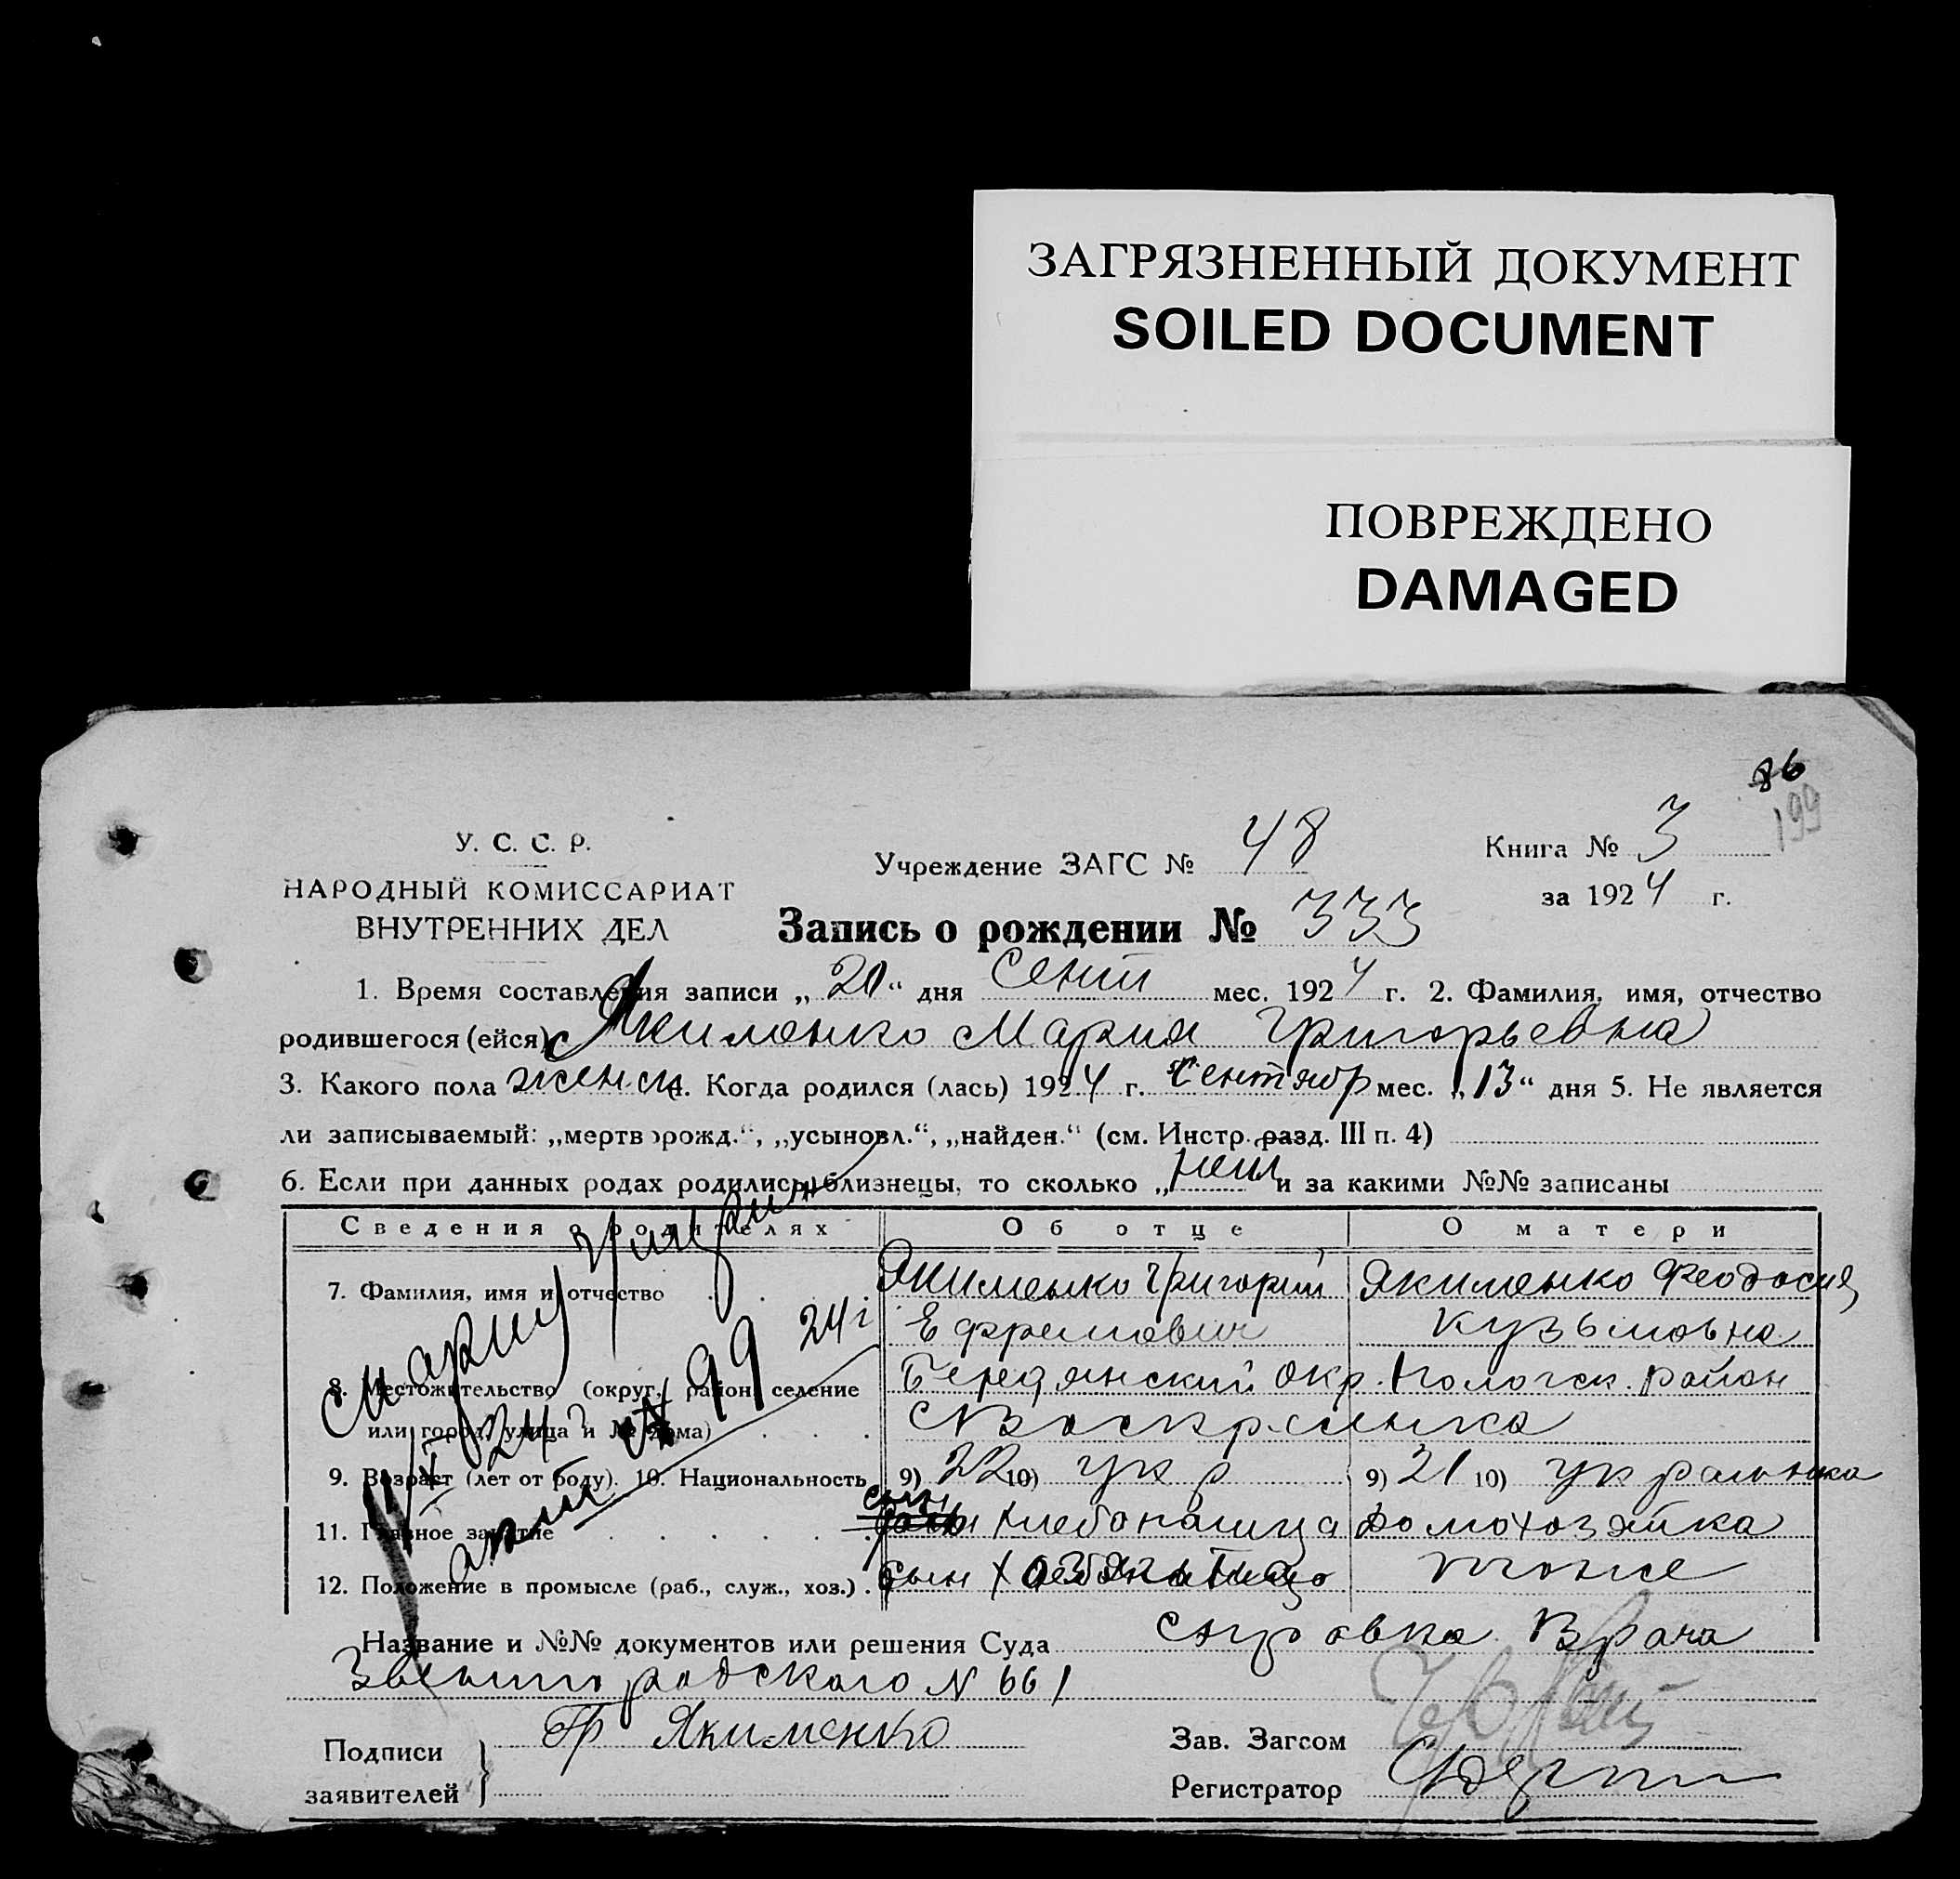 ЗАГРЯЗНЕННЫЙ ДОКУМЕНТ
SOILED DOCUMENT
ПОВРЕЖДЕНО
DAMAGED
86
199
У. С. С. Р.
НАРОДНЫЙ КОМИССАРИАТ
ВНУТРЕННИХ ДЕЛ
Учреждение ЗАГС № 48
Книга № 3
за 1924 г.
Запись о рождении № 333
1. Время составления записи „20“ дня Сент мес. 1924 г. 2. Фамилия, имя, отчество
родившегося (ейся) Якименко Мария Григорьевна
3. Какого пола женск 4. Когда родился (лась) 1924 г. Сентябр мес. „13“ дня 5. Не является
ли записываемый: „мертворожд.“, „усыновл.“, „найден.“ (см. Инстр. разд. III п. 4)
6. Если при данных родах родились близнецы, то сколько „нет и за какими №№ записаны
Сведения о родителях Об отце О матери
7. Фамилия, имя и отчество Якименко Григорий Якименко Феодосия
Ефремович Кузьмовна
8. Местожительство (округ, район, селение Бердянский Окр. Пологск. район
или город, улица и № дома) с Воскресенка
9. Возраст (лет от роду). 10. Национальность 9) 22 10) укр 9) 21 10) украинка
11. Главное занятие сын хлебопашца домохозяйка
12. Положение в промысле (раб., служ., хоз.) сын тоже
Марию
24 г
99
Название и №№ документов или решения Суда справка Врача
N 661
Подписи
заявителей
Гр Якименко
Зав. Загсом
Регистратор